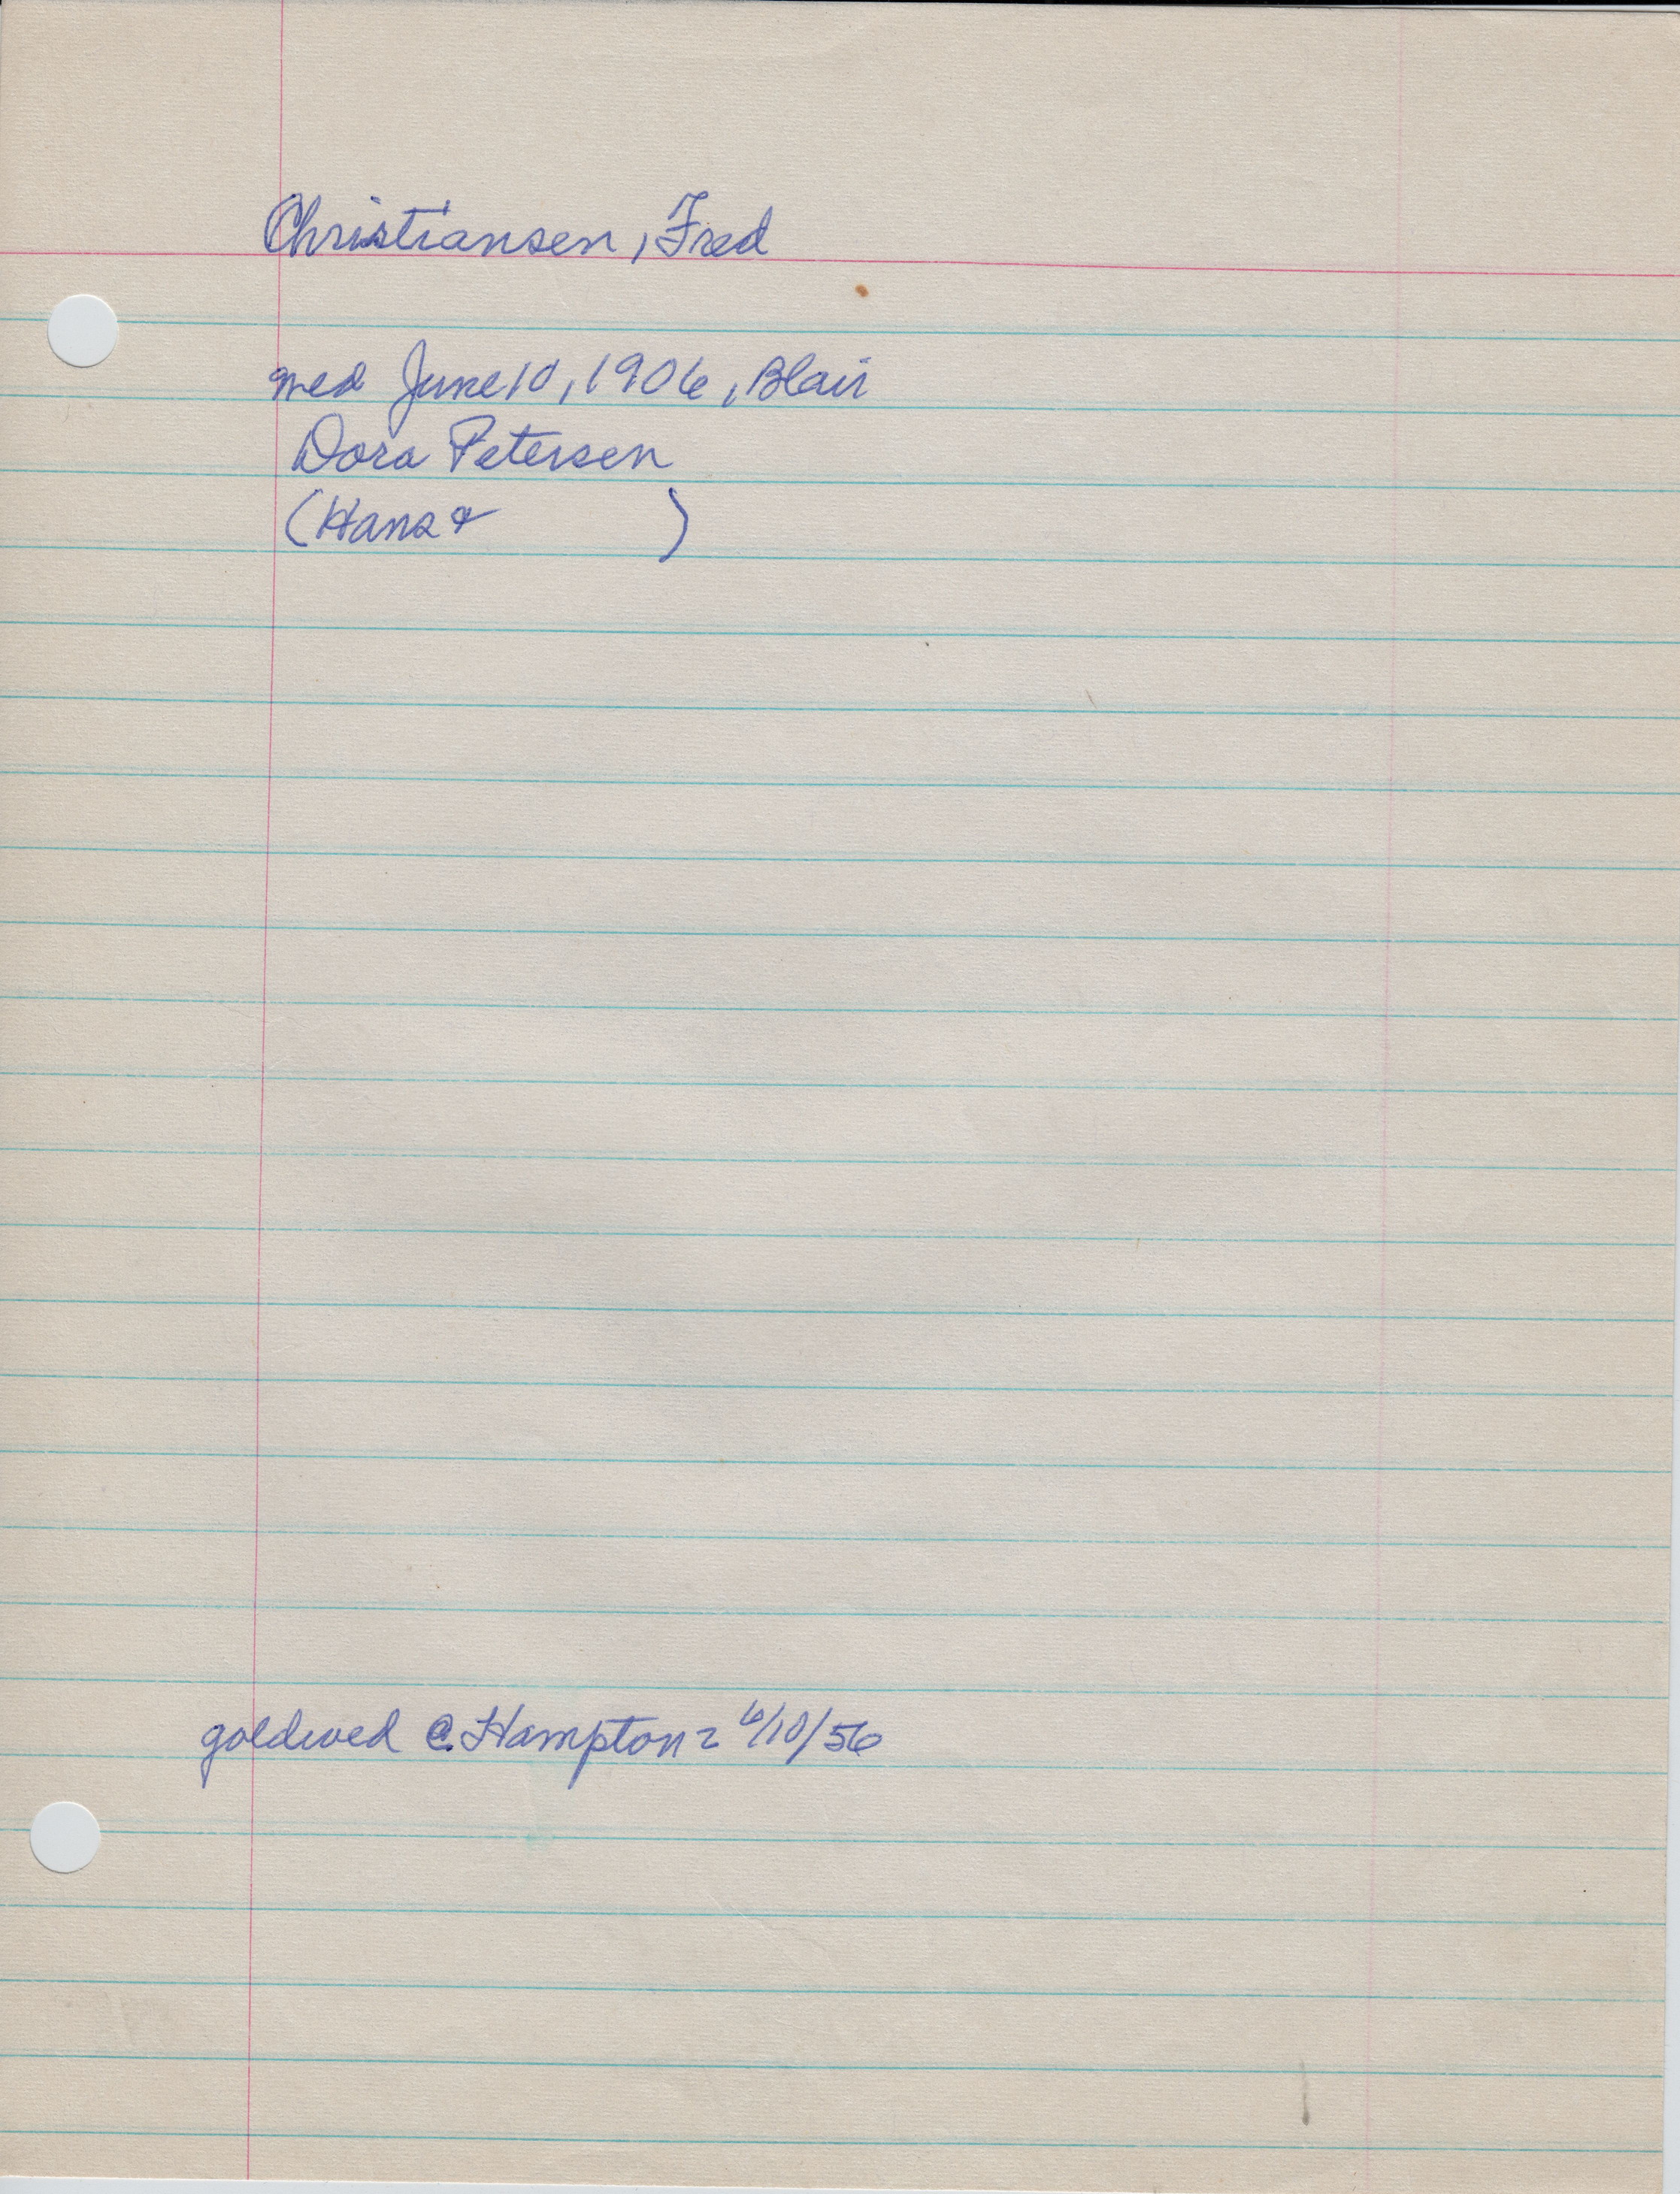 Christiansen, Fred
med June 10, 1906, Blair
Dora Petersen
(Hans & )
goldwed @ Hampton = 6/10/56